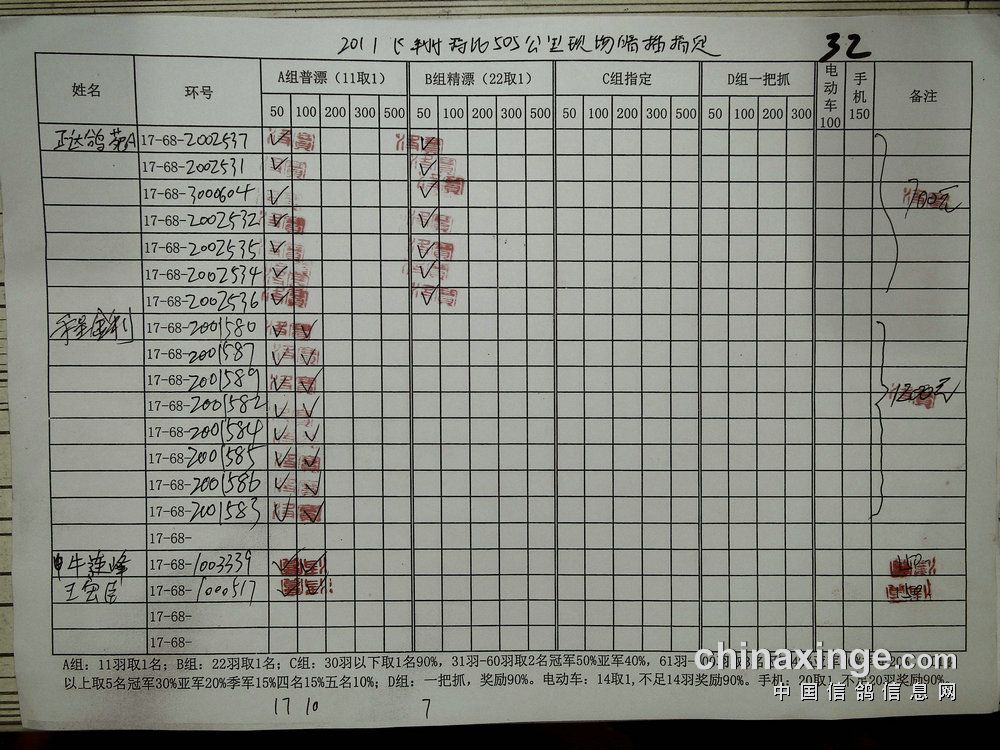 32
姓名 环号 A组普漂（11取1） B组精漂（22取1） C组指定 D组一把抓 电动车100 手机150 备注
50 100 200 300 500 50 100 200 300 500 50 100 200 300 500 50 100 200 300
17-68-2002537 ✓ ✓
17-68-2002531 ✓ ✓
17-68-3000604 ✓ ✓ 700元
17-68-2002532 ✓ ✓
17-68-2002535 ✓ ✓
17-68-2002534 ✓ ✓
17-68-2002536 ✓ ✓
17-68-2001580 ✓ ✓
17-68-2001587 ✓ ✓
17-68-2001589 ✓ ✓
17-68-2001582 ✓ ✓
17-68-2001584 ✓ ✓
17-68-2001585 ✓ ✓
17-68-2001586 ✓ ✓
17-68-2001583 ✓ ✓
17-68-
牛连峰 17-68-1003339
17-68-1000517
17-68-
17-68-
A组：11羽取1名；B组：22羽取1名；C组：30羽以下取1名90%，31羽-60羽取2名冠军50%亚军40%，61羽
以上取5名冠军30%亚军20%季军15%四名15%五名10%；D组：一把抓，奖励90%。电动车：14取1，不足14羽奖励90%。手机：20取1，不足20羽奖励90%。
chinaxinge.com
中国信鸽信息网
17 10 7